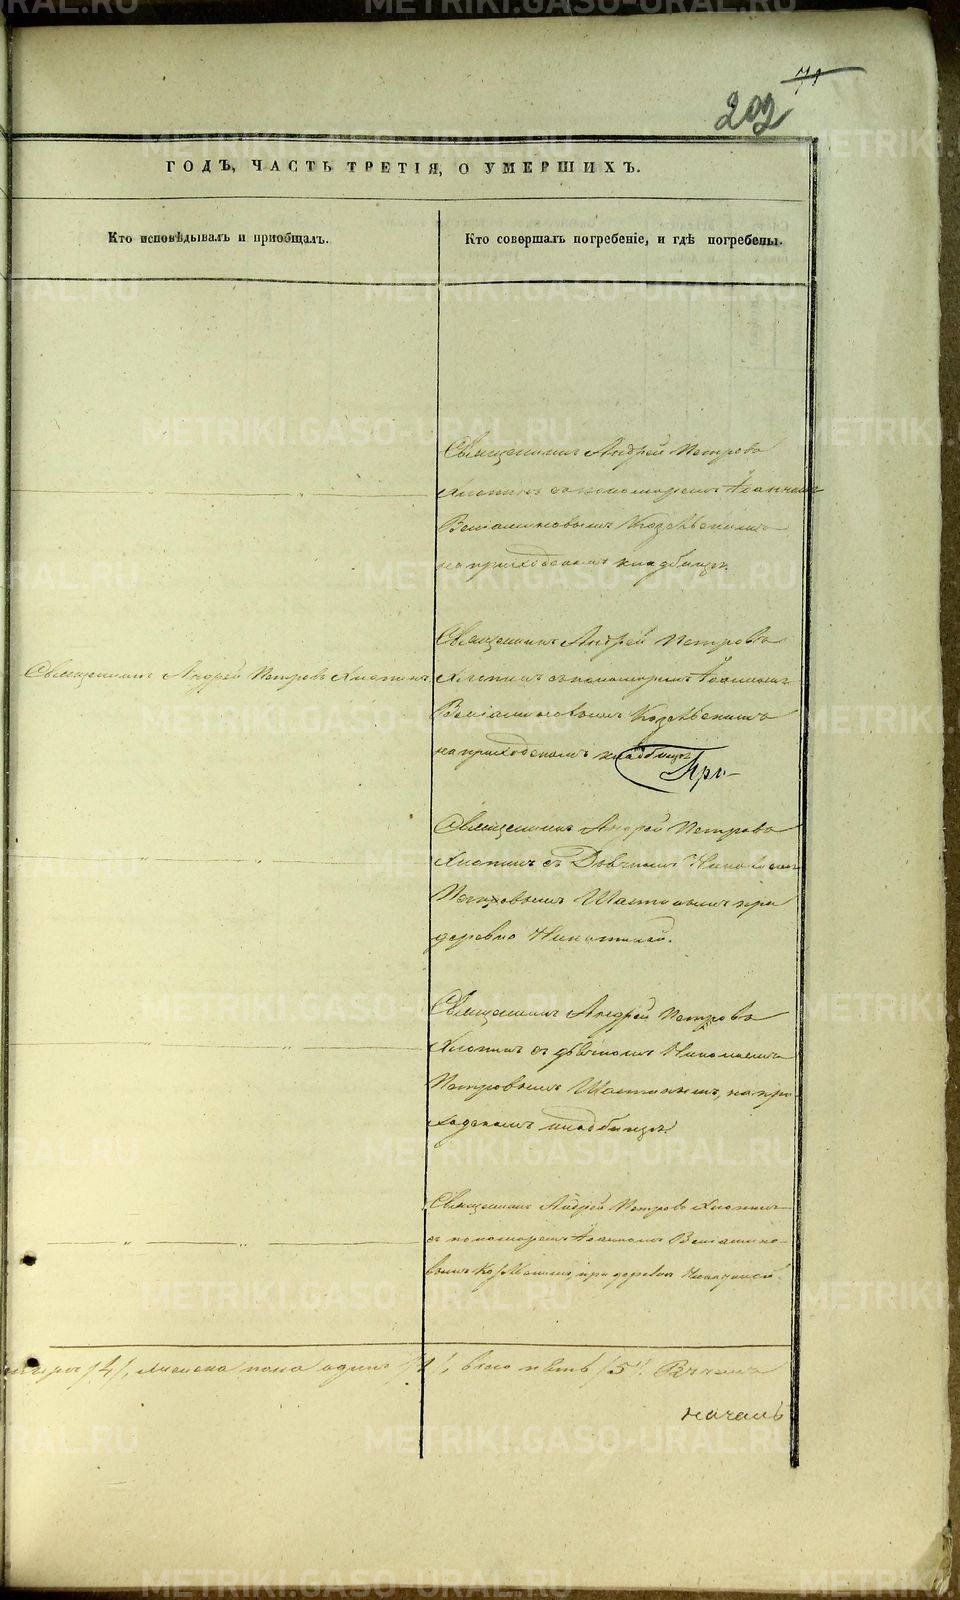 71
202
ГОДЪ, ЧАСТЬ ТРЕТІЯ, О УМЕРШИХЪ.
Кто исповѣдывалъ и пріобщалъ.
Кто совершалъ погребеніе, и гдѣ погребены.
Священникъ Андрей Петровъ
Хлопинъ съ пономаремъ Іоанномъ
Веніаминовымъ
на приходскомъ кладбищѣ.
Священникъ Андрей Петровъ
Священникъ Андрей Петровъ Хлопинъ
Хлопинъ съ пономаремъ Іоанномъ
Веніаминовымъ
на приходскомъ кладбищѣ
Священникъ Андрей Петровъ
Хлопинъ съ Дьячкомъ Николаемъ
Петровымъ при
деревнѣ
Священникъ Андрей Петровъ
Хлопинъ съ дьячкомъ Николаемъ
Петровымъ на при-
ходскомъ кладбищѣ.
Священникъ Андрей Петровъ Хлопинъ
съ пономаремъ Іоанномъ Веніамино-
вымъ при деревнѣ
/4/, женска пола одинъ /1/, всего пять /5/. Въ чемъ
METRIKI.GASO-URAL.RU